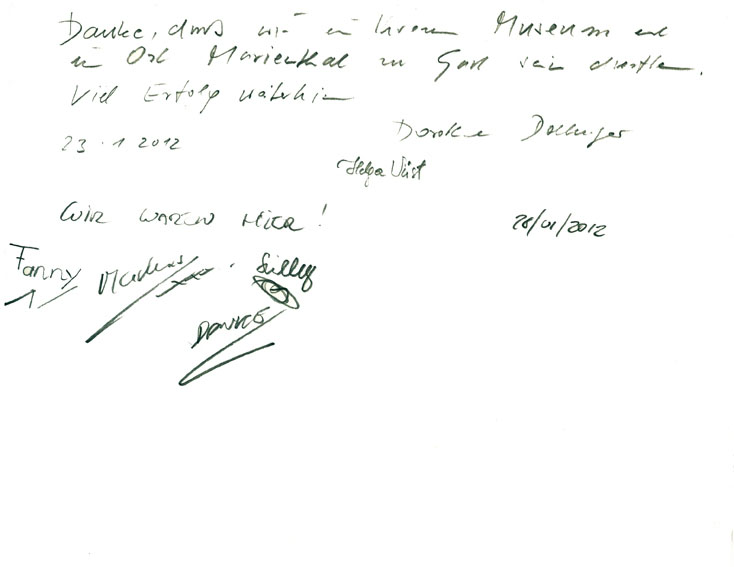 Danke, dass wir in Ihrem Museum und
in Ort Marienthal zu Gast sein durften.
Viel Erfolg weiterhin
23.1.2012
Helga Wüst
WIR WAREN HIER! 28/01/2012
Fanny Markus
DANKE